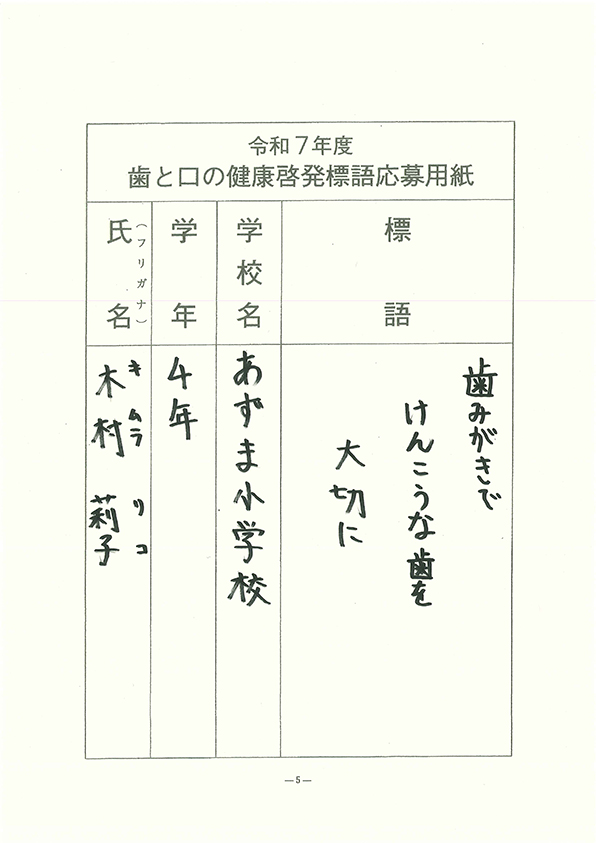 令和7年度
歯と口の健康啓発標語応募用紙
標語
歯みがきで
けんこうな歯を
大切に
学校名
あずま小学校
学年
4年
氏名
(フリガナ)
木村 莉子
キムラ リコ
—5—